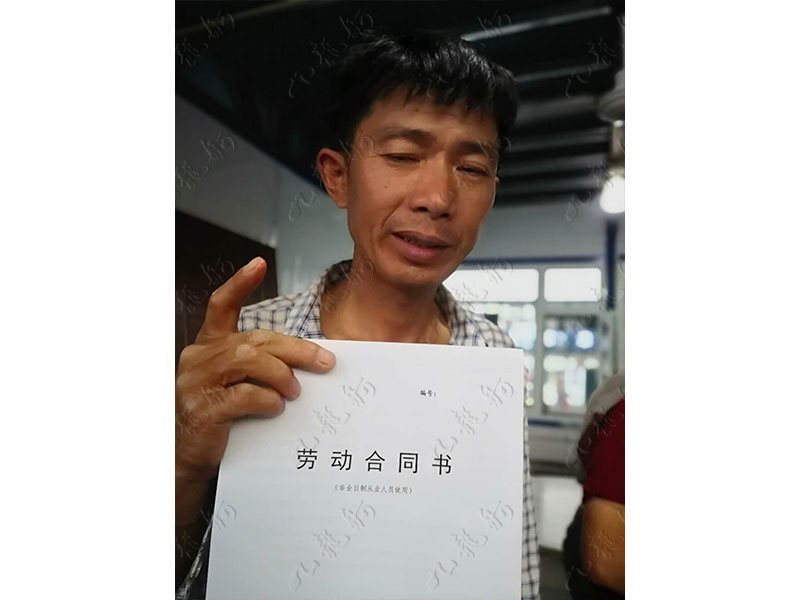 编号：
劳动合同书
（非全日制从业人员使用）